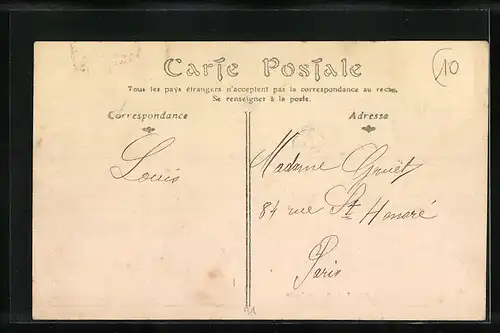 Carte Postale
10
Tous les pays étrangers n'acceptent pas la correspondance au recto.
Se renseigner à la poste.
Correspondance
Adresse
Louis
Madame Gruët
84 rue St Honoré
Paris